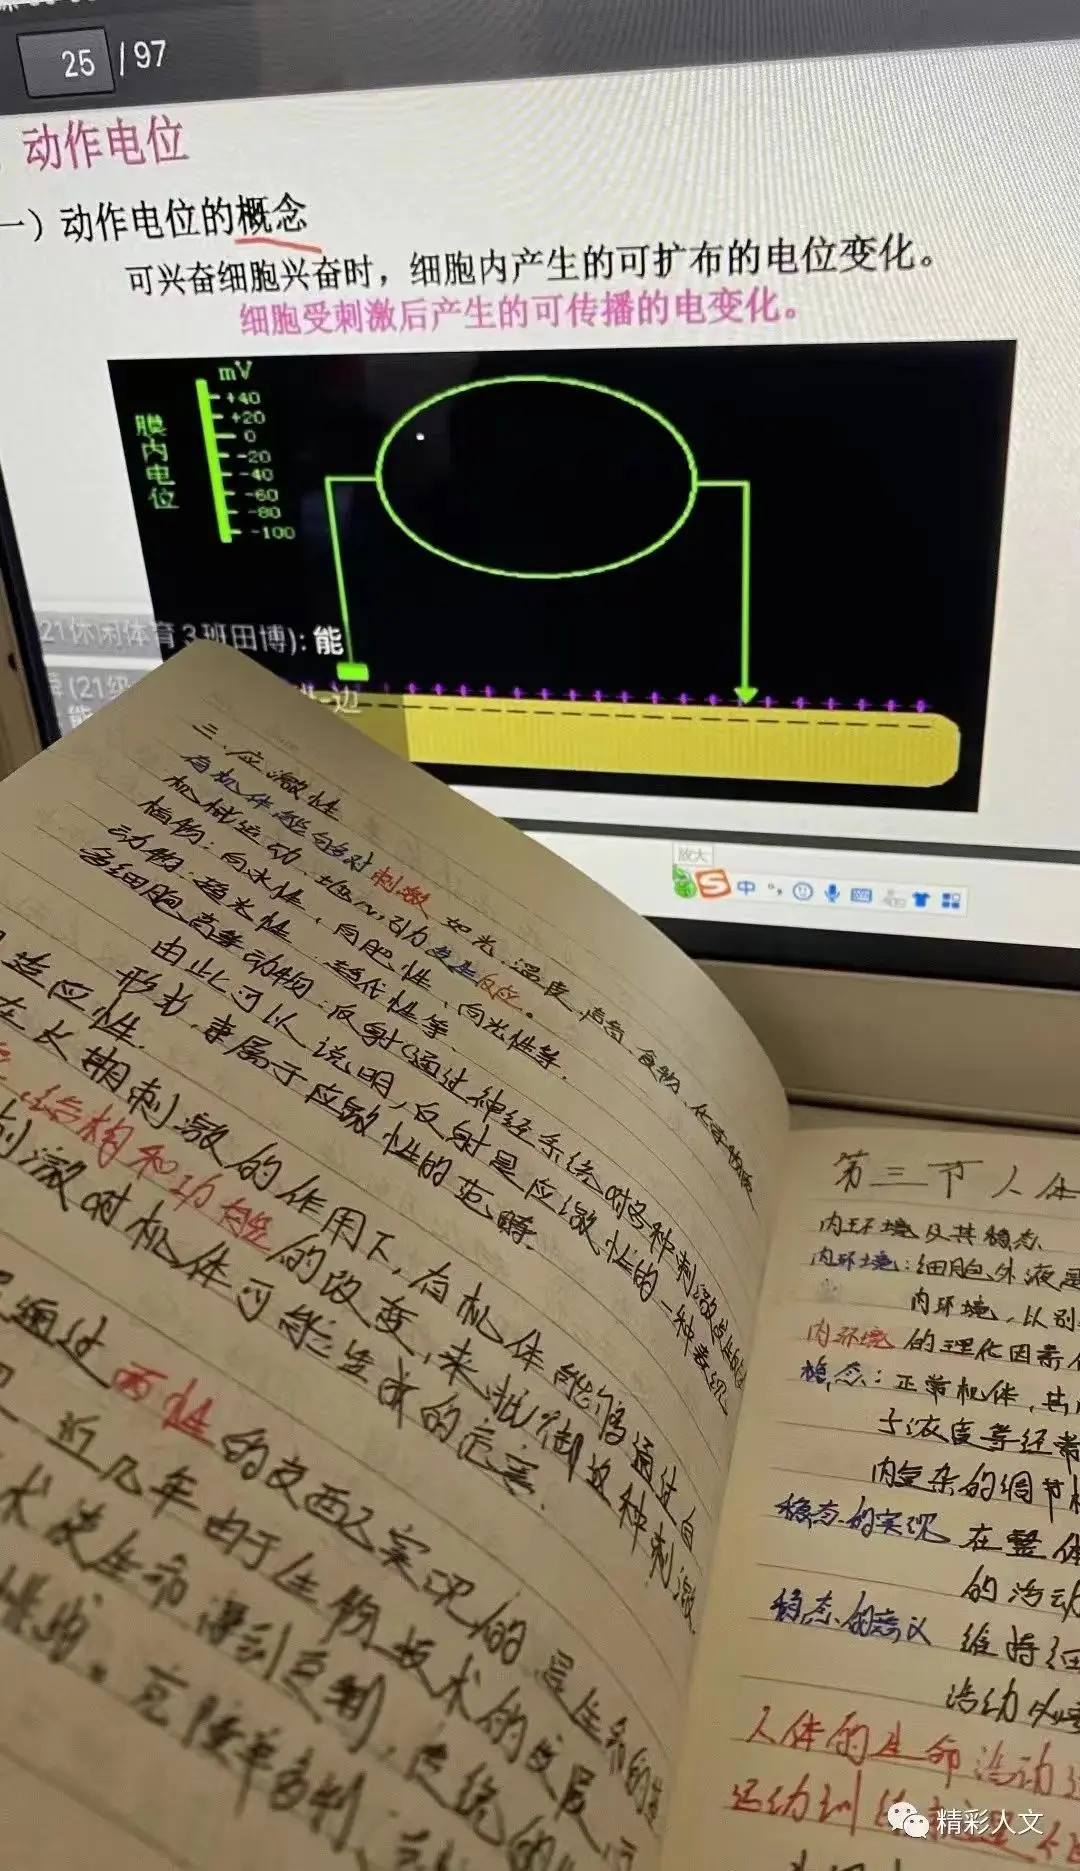 25 / 97
动作电位
一）动作电位的概念
可兴奋细胞兴奋时，细胞内产生的可扩布的电位变化。
细胞受刺激后产生的可传播的电变化。
mV
+40
+20
0
-20
-40
-60
-80
-100
膜内电位
21休闲体育3班田博): 能
(21级
边
放大
中
三、应激性
有机体能够对刺激 如光、温度、声音、食物、化学物质
机械运动、地心引力发生反应。
植物：向水性、向肥性、向光性等.
动物：趋光性、趋化性等.
多细胞高等动物：反射(通过神经系统对各种刺激发生的
由此可以说明,反射是应激性的一种表现
形式,隶属于应激性的范畴.
适应性.
在长期刺激的作用下,有机体能够通过自
结构和功能的改变,来抵御这种刺激
刺激对机体可能造成的危害.
通过两性的交配实现的 是生命的
近几年由于生物技术的发展
术使生命得到复制,传统的
第三节 人体
内环境及其稳态
内环境：细胞外液是
内环境,以别
内环境的理化因素
稳态：正常机体,其
子浓度等经常
内复杂的调节
稳态的实现 在整体
的活动
稳态的意义 维持细
活动
人体的生命活动
运动训练
精彩人文